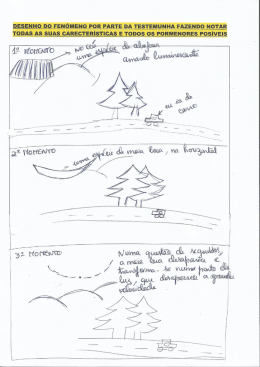 DESENHO DO FENÓMENO POR PARTE DA TESTEMUNHA FAZENDO NOTAR
TODAS AS SUAS CARECTERÍSTICAS E TODOS OS PORMENORES POSÍVEIS
1º MOMENTO
no céu
uma espécie de abajour
amarelo luminescente
eu ia de
carro
2º MOMENTO
uma espécie de meia lua, na horizontal
3º MOMENTO
Numa questão de segundos,
a meia lua desaparece e
transforma-se num ponto de
luz, que desaparece a grande
velocidade